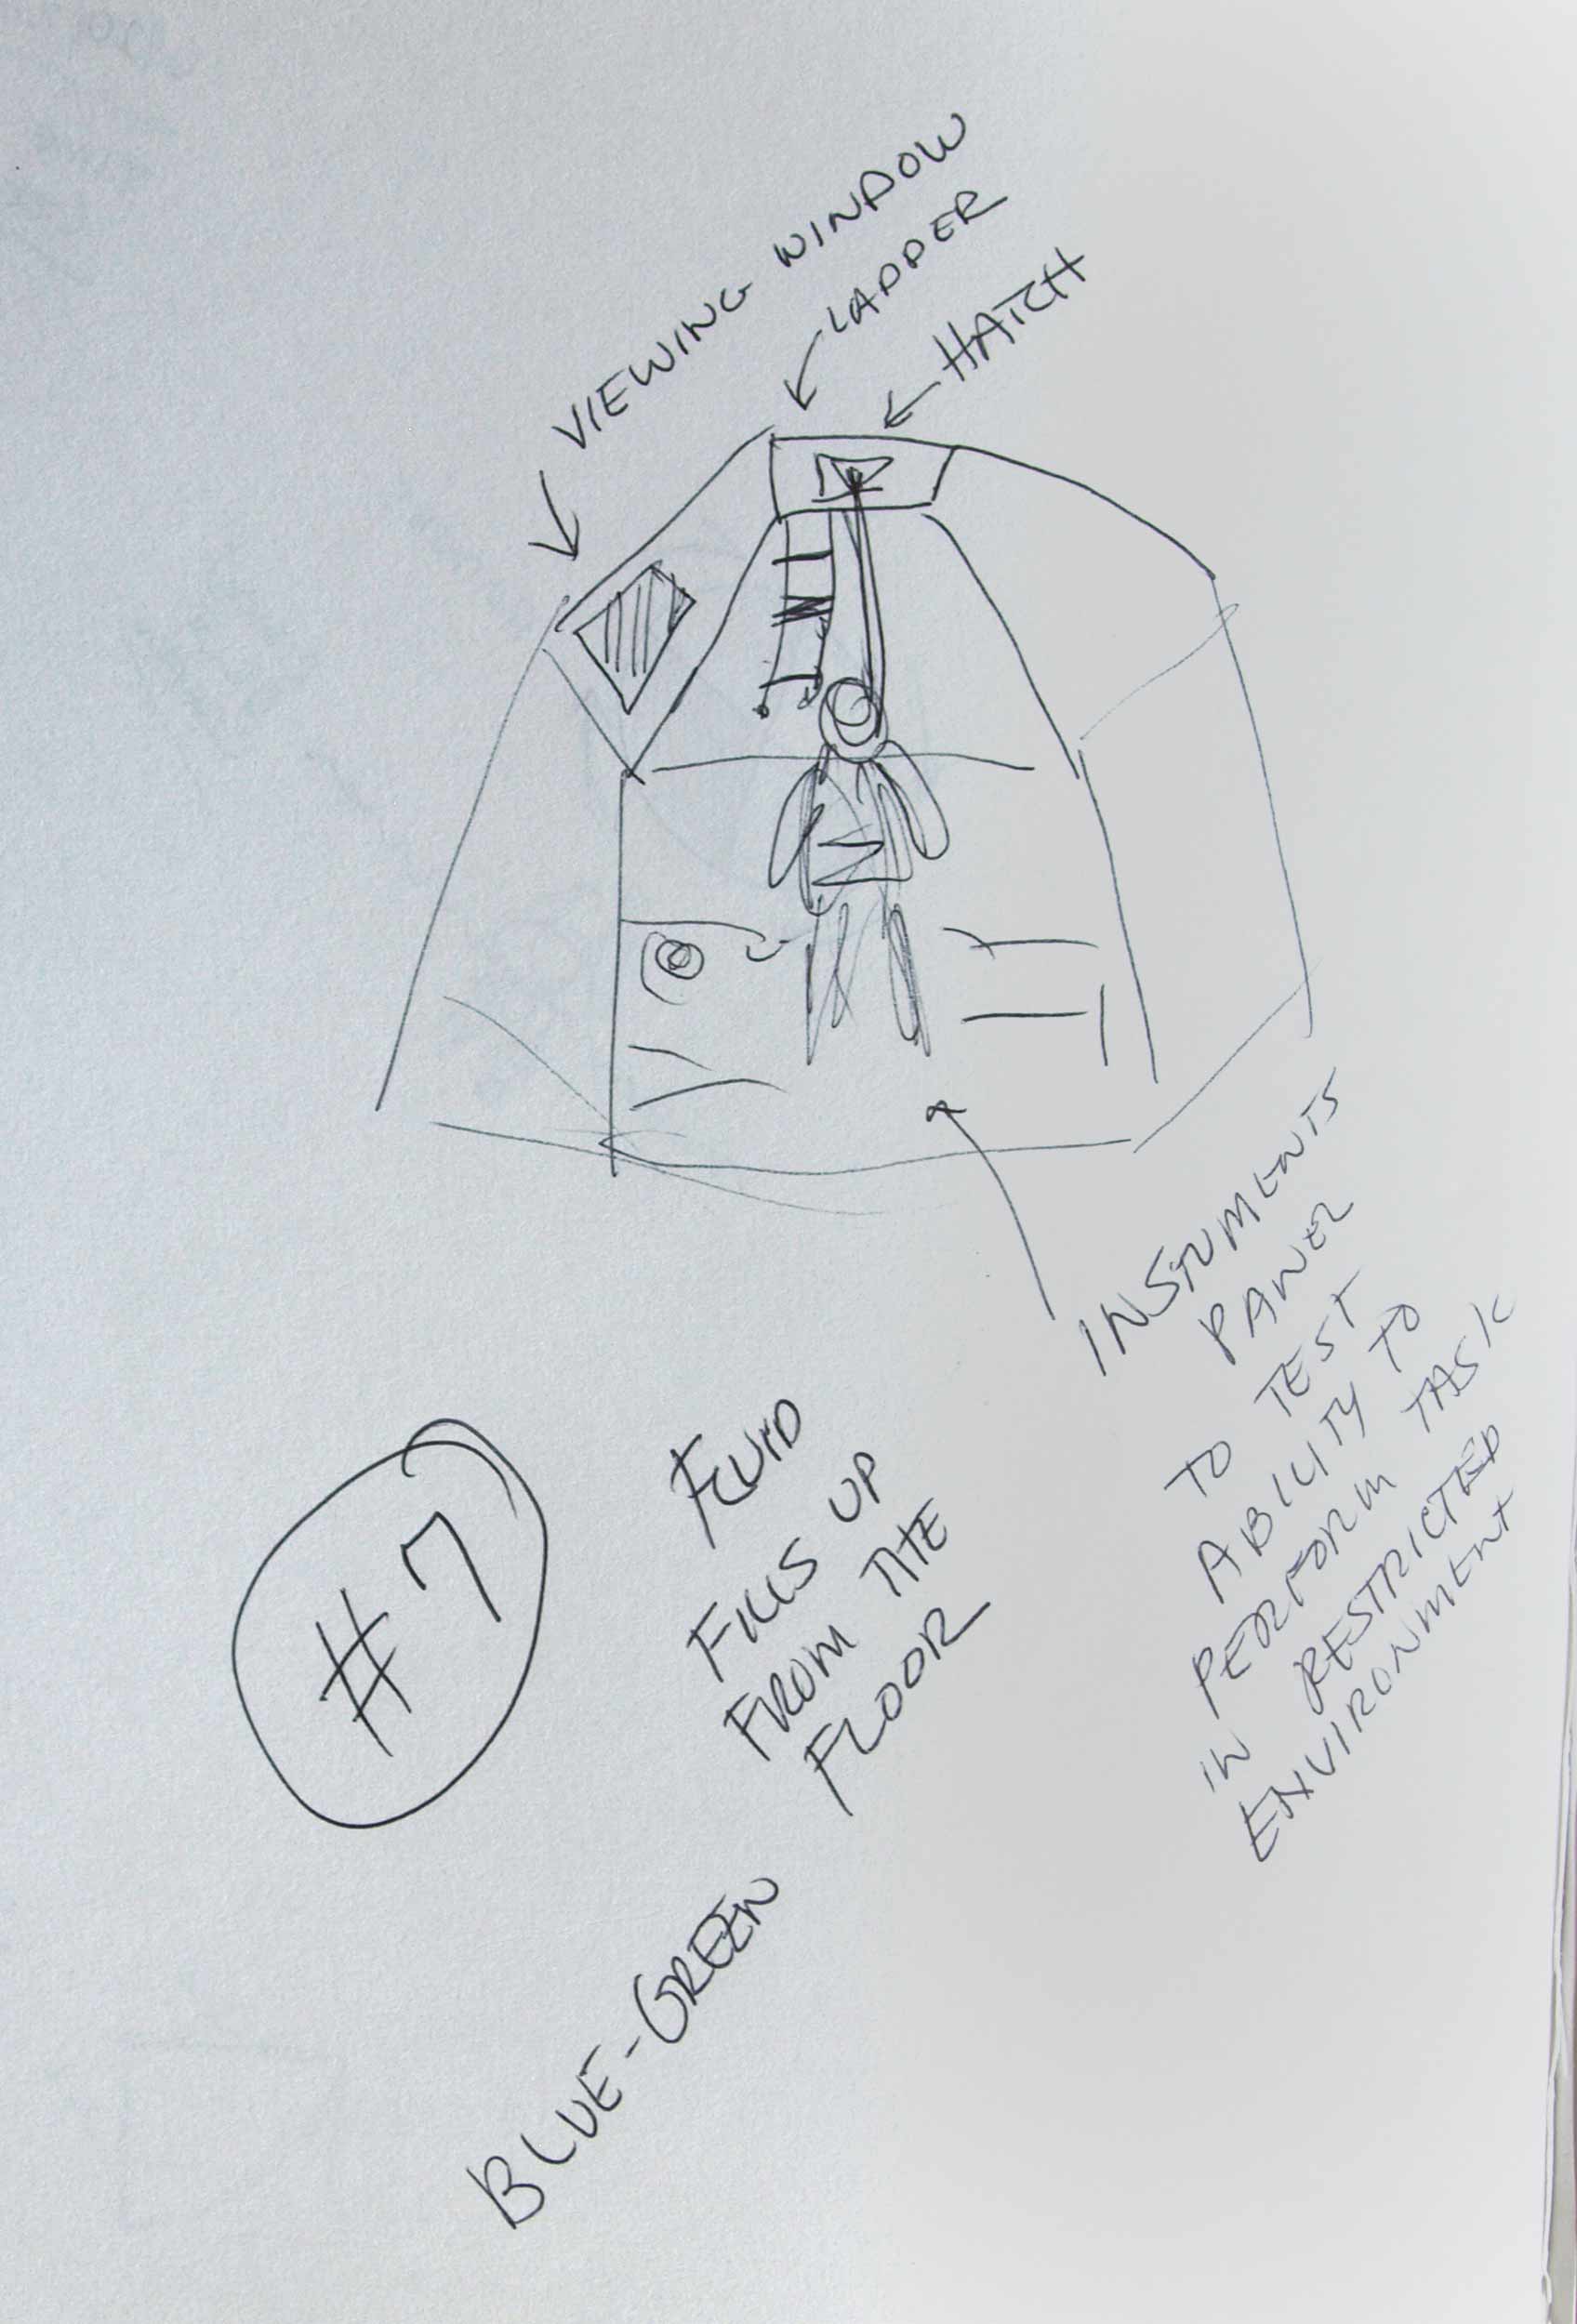 VIEWING WINDOW
LADDER
HATCH
INSTUMENTS
PANEL
TO TEST
ABILITY TO
PERFORM TASK
IN RESTRICTED
ENVIRONMENT
#7
FLUID
FILLS UP
FROM THE
FLOOR
BLUE-GREEN